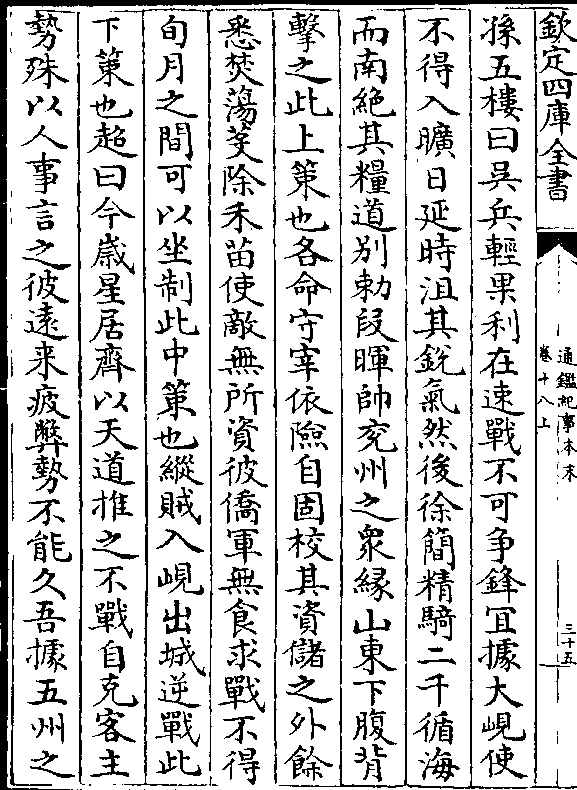 欽定四庫全書
通鑑紀事本末
卷十八上
三十五
孫五樓曰吳兵輕果利在速戰不可争鋒冝據大峴使
不得入曠日延時沮其銳氣然後徐簡精騎二千循海
而南絶其糧道别勅段暉帥兖州之衆緣山東下腹背
擊之此上策也各命守宰依險自固校其資儲之外餘
悉焚蕩芟除禾苗使敵無所資彼僑軍無食求戰不得
旬月之間可以坐制此中策也縱賊入峴出城逆戰此
下策也超曰今嵗星居齊以天道推之不戰自克客主
勢殊以人事言之彼遠来疲弊勢不能久吾據五州之